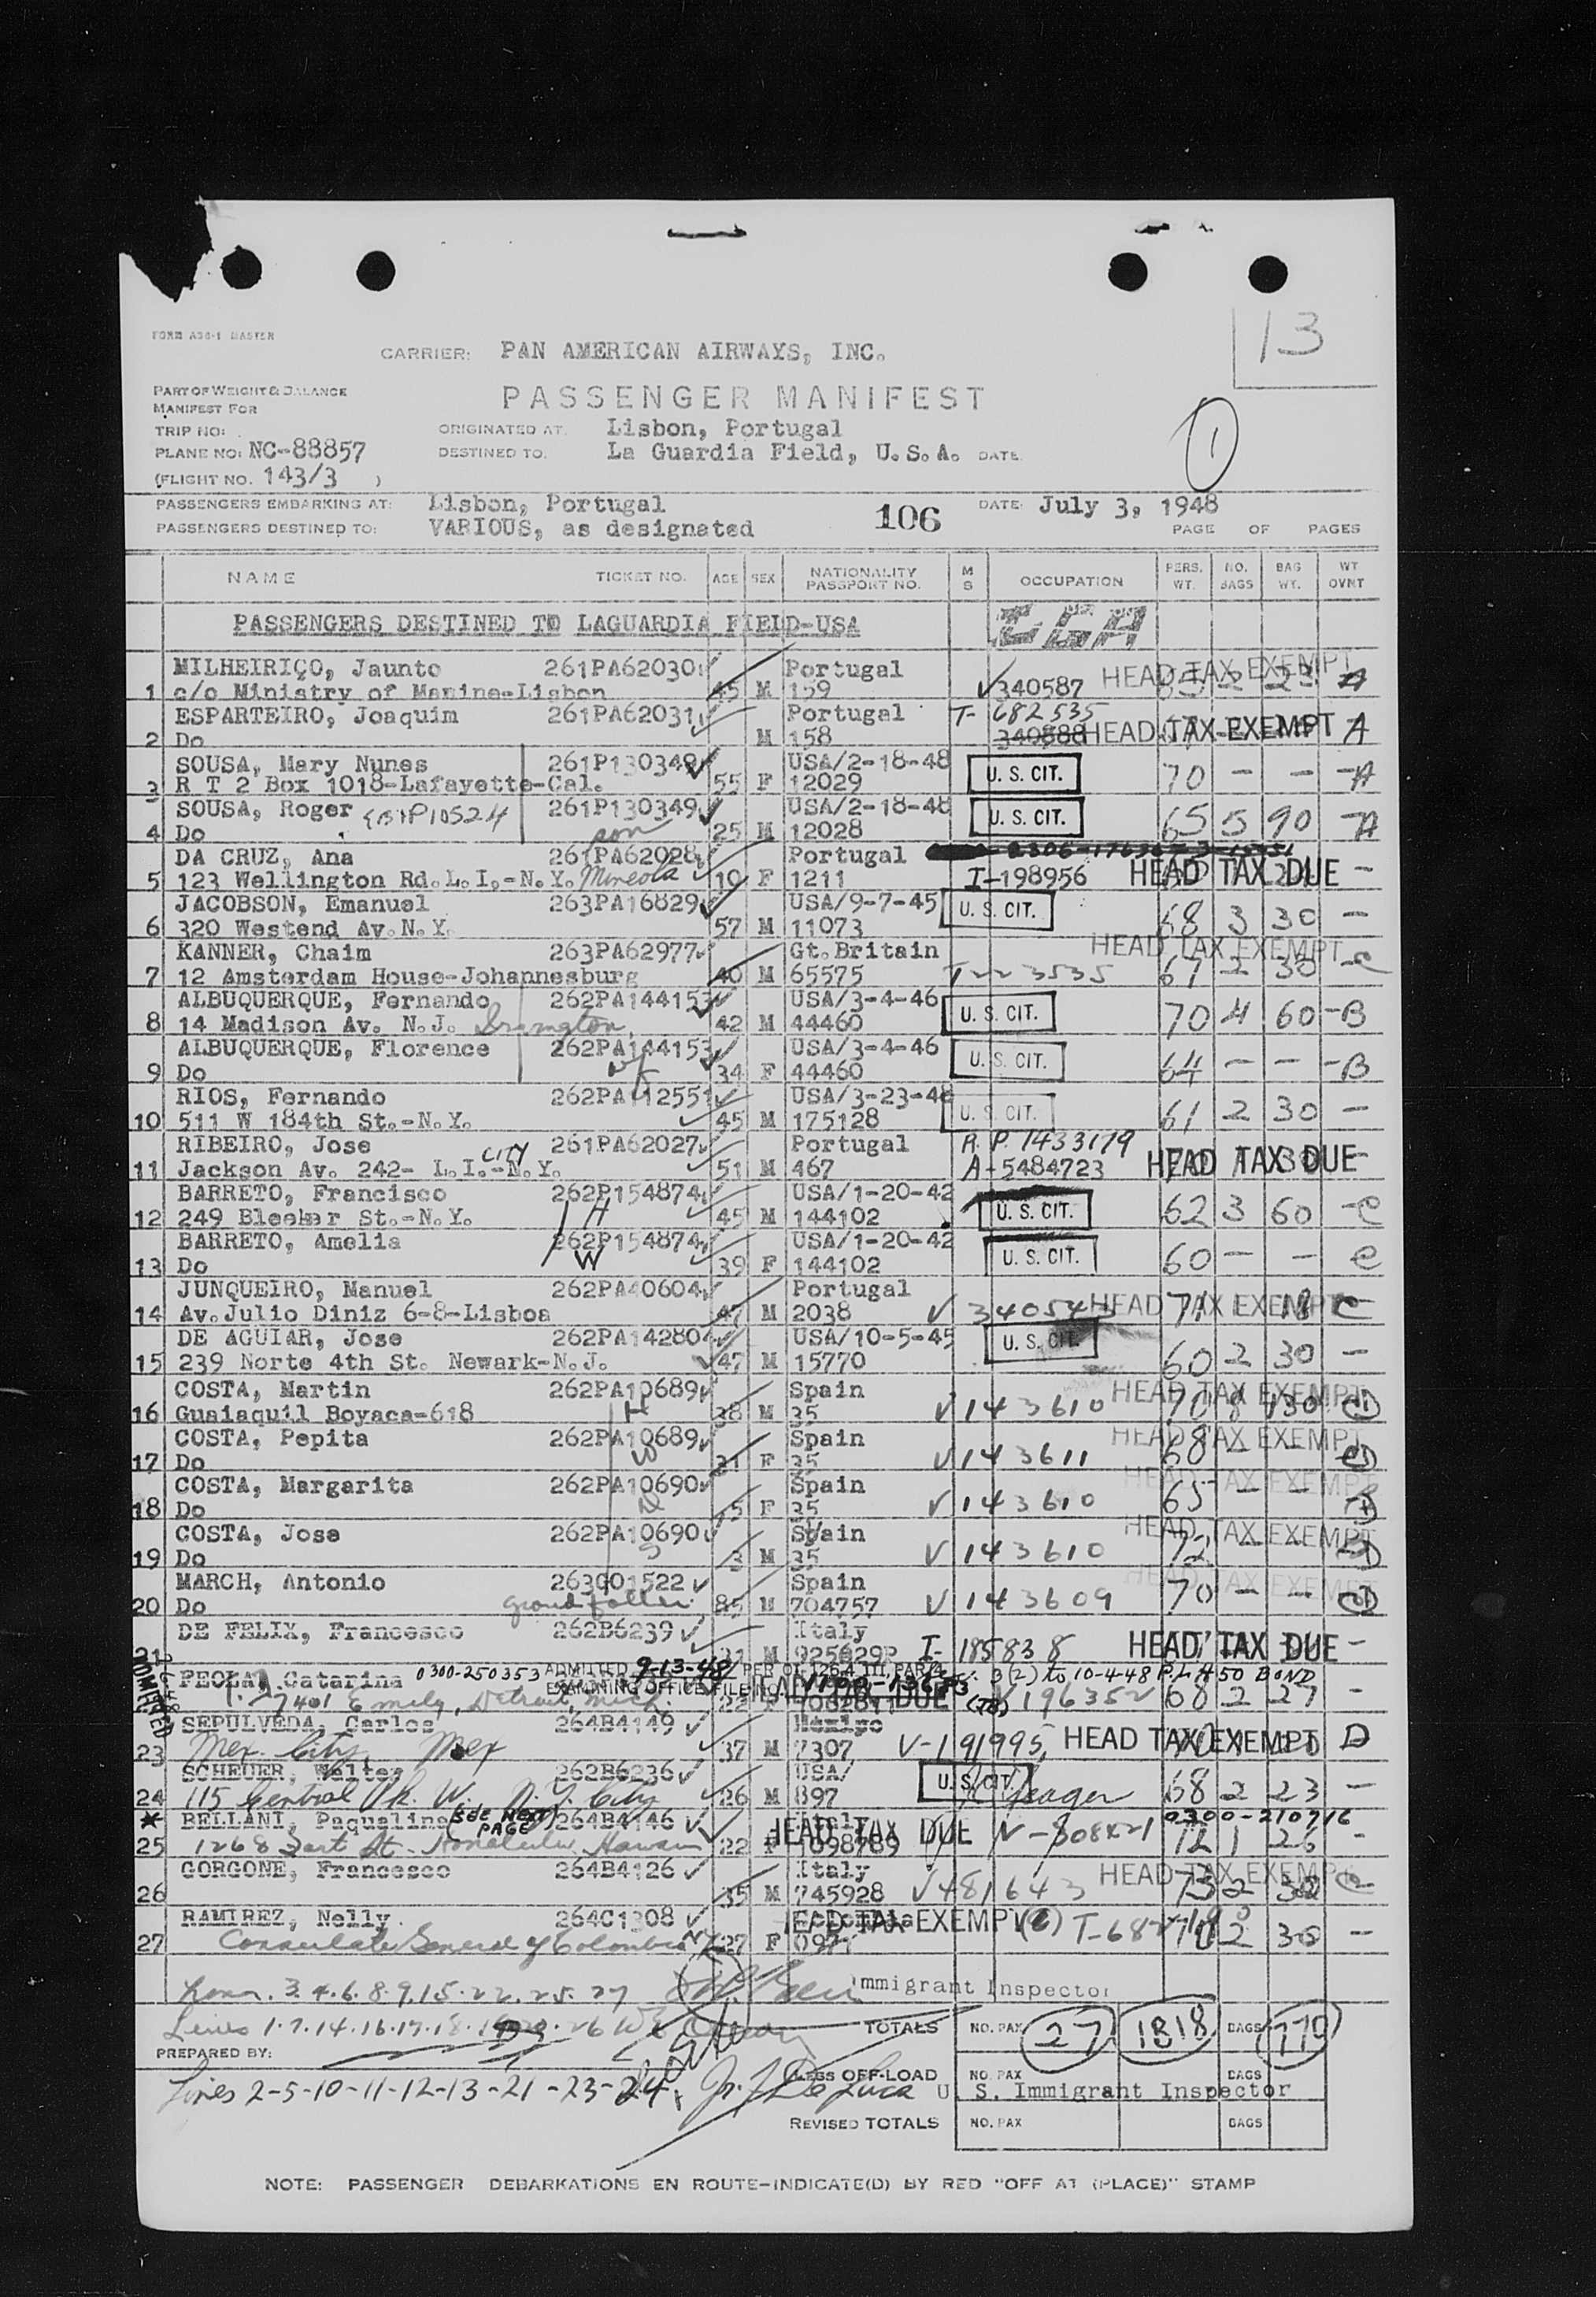 13
FORM A36-1 MASTER
CARRIER: PAN AMERICAN AIRWAYS, INC.
PART OF WEIGHT & BALANCE
MANIFEST FOR
PASSENGER MANIFEST
1
TRIP NO:
ORIGINATED AT. Lisbon, Portugal
PLANE NO: NC-88857
DESTINED TO. La Guardia Field, U.S.A. DATE
(FLIGHT NO. 143/3 )
PASSENGERS EMBARKING AT: Lisbon, Portugal 106 DATE: July 3, 1948
PASSENGERS DESTINED TO: VARIOUS, as designated PAGE OF PAGES
NAME TICKET NO. AGE SEX NATIONALITY PASSPORT NO. M S OCCUPATION PERS. WT. NO. BAGS BAG WT. WT OVNT
PASSENGERS DESTINED TO LAGUARDIA FIELD-USA LGA
MILHEIRIÇO, Jaunto 261PA62030 Portugal HEAD TAX EXEMPT
1 c/o Ministry of Marine-Lisbon 45 M 159 340587 A
ESPARTEIRO, Joaquim 261PA62031 Portugal T- 682535
2 Do M 158 340588 HEAD TAX EXEMPT A
SOUSA, Mary Nunes 261P130349 USA/2-18-48 U. S. CIT.
3 R T 2 Box 1018-Lafayette-Cal. 55 F 12029 70 - - -A
SOUSA, Roger 261P130349 USA/2-18-48 U. S. CIT.
4 Do son 25 M 12028 65 5 90 -A
DA CRUZ, Ana 261PA62028 Portugal
5 123 Wellington Rd.L.I.-N.Y. Mineola 19 F 1211 I-198956 HEAD TAX DUE -
JACOBSON, Emanuel 263PA16829 USA/9-7-45 U. S. CIT.
6 320 Westend Av.N.Y. 57 M 11073 68 3 30 -
KANNER, Chaim 263PA62977 Gt.Britain HEAD TAX EXEMPT
7 12 Amsterdam House-Johannesburg 40 M 65575 67 2 30 -C
ALBUQUERQUE, Fernando 262PA144153 USA/3-4-46 U. S. CIT.
8 14 Madison Av. N.J. Irvington 42 M 44460 70 4 60 -B
ALBUQUERQUE, Florence 262PA144153 USA/3-4-46 U. S. CIT.
9 Do wf 34 F 44460 64 - - -B
RIOS, Fernando 262PA112551 USA/3-23-48 U. S. CIT.
10 511 W 184th St.-N.Y. 45 M 175128 61 2 30 -
RIBEIRO, Jose 261PA62027 Portugal R.P. 1433179
11 Jackson Av. 242- L.I.-N.Y. CITY 51 M 467 A-5484723 HEAD TAX DUE -
BARRETO, Francisco 262P154874 USA/1-20-42 U. S. CIT.
12 249 Bleeker St.-N.Y. H 45 M 144102 62 3 60 -C
BARRETO, Amelia 262P154874 USA/1-20-42 U. S. CIT.
13 Do W 39 F 144102 60 - - C
JUNQUEIRO, Manuel 262PA40604 Portugal HEAD TAX EXEMPT
14 Av.Julio Diniz 6-8-Lisboa 47 M 2038 C
DE AGUIAR, Jose 262PA14280 USA/10-5-45 U. S. CIT.
15 239 Norte 4th St. Newark-N.J. 47 M 15770 60 2 30 -
COSTA, Martin 262PA10689 Spain HEAD TAX EXEMPT
16 Guaiaquil Boyaca-618 H 38 M 35 V 143610 70 8 130
COSTA, Pepita 262PA10689 Spain HEAD TAX EXEMPT
17 Do W 31 F 35 V 143611 68 - -
COSTA, Margarita 262PA10690 Spain HEAD TAX EXEMPT
18 Do 5 F 35 V 143610 65 - -
COSTA, Jose 262PA10690 Spain HEAD TAX EXEMPT
19 Do S 3 M 35 V 143610 72 - -
MARCH, Antonio 263G01522 Spain HEAD TAX EXEMPT
20 Do grand father 85 M 704757 V 143609 70 - -
DE FELIX, Francesco 262B6239 Italy
21 31 M 925829P I- 185838 HEAD TAX DUE -
PEOLA, Catarina 0300-250353 ADMITTED 9-13-48 PER OI-126.4 III, PAR. 3(2) to 10-4-48 P.L. 450 BOND
ADMITTED 7401 Emily, Detroit, Mich. EXAMINING OFFICE FILE NO. HEAD TAX DUE 22 F V 196352 60 2 27 -
SEPULVEDA, Carlos 264B4149 Mexico
23 Mex. City, Mex 37 M 7307 V-191995 HEAD TAX EXEMPT D
SCHEUER, Walter 262B6236 USA/ U. S. CIT.
24 115 Central Pk. W. N.Y. City 26 M 897 68 2 23 -
* BELLANI, Paqualina (SEE NEXT PAGE) 264B4146 Italy 0300-210716
25 1268 Honolulu, Hawaii 22 F 1098789 HEAD TAX DUE 72 1 26 -
GORGONE, Francesco 264B4126 Italy HEAD TAX EXEMPT
26 35 M 745928 V481643 73 2 30 C
RAMIREZ, Nelly 264C1308 Colombia HEAD TAX EXEMPT
27 Consulate General of Colombia 27 F 2 30 -
Lines 3.4.6.8.9.15.22.25.27 Immigrant Inspector
Lines 1.7.14.16.17.18.19.20.26
TOTALS NO. PAX 27 1818 BAGS 779
PREPARED BY:
LESS OFF-LOAD NO. PAX BAGS
Lines 2-5-10-11-12-13-21-23-24. Jr. J De Luca U. S. Immigrant Inspector
REVISED TOTALS NO. PAX BAGS
NOTE: PASSENGER DEBARKATIONS EN ROUTE-INDICATE(D) BY RED "OFF AT (PLACE)" STAMP